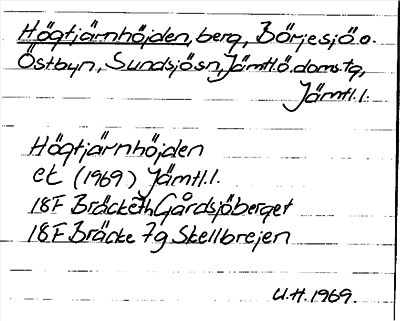 Högtjärnhöjden, berg, Börjesjö o.
Östbyn, Sundsjö sn, Jämtl.ö. doms. tg,
Jämtl. l.
Högtjärnhöjden
ek (1969) Jämtl. l.
18F Bräcke 7h Gårdsjöberget
18F Bräcke 7g Skellbrejen
U.H. 1969.